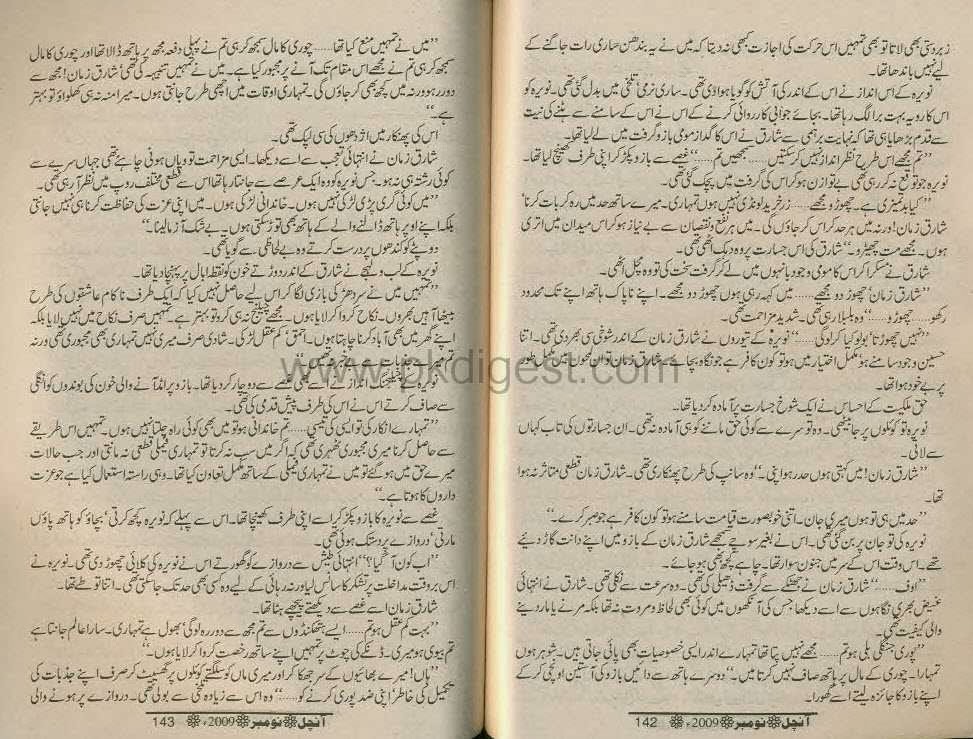 زبردستی بھی لاتا تو بھی تمہیں اس حرکت کی اجازت کبھی نہ دیتا کہ میں نے یہ بندھن ھماری رات جاگنے کے
لیے نہیں باندھا تھا۔
نویرہ کے اس انداز نے اس کے اندر کی آتش کو گویا ہوا دی تھی۔ ساری نرمی تلخی میں بدل گئی تھی۔ نویرہ کو
اس کا رویہ بہت برا لگ رہا تھا۔ بجائے جوابی کارروائی کرنے کے اس نے اس کے سامنے سے ہٹنے کی نیت
سے قدم بڑھایا ہی تھا کہ نہایت برہمی سے شارق نے اس کا گداز مومی بازو گرفت میں لے لیا تھا۔
”تم مجھے اس طرح نظر انداز نہیں کر سکتیں...... سمجھیں تم......“ غصے سے بازو پکڑ کر اپنی طرف کھینچ لیا تھا۔
نویرہ جو توقع نہ کر رہی تھی بے توازن ہو کر اس کی گرفت میں پچک گئی تھی۔
”کیا بدتمیزی ہے۔ چھوڑو مجھے...... زر خرید لونڈی نہیں ہوں تمہاری۔ میرے ساتھ حد میں رہ کر بات کرنا‘
شارق زمان! ورنہ میں ہر حد کراس کر جاؤں گی۔ میں ہر نفع و نقصان سے بے نیاز ہو کر اس میدان میں اتری
ہوں۔ مجھے مت چھیڑو۔“ شارق کی اس جسارت پر وہ دہک اٹھی تھی۔
شارق نے مسکرا کر اس کا مومی وجود بانہوں میں لے کر گرفت سخت کی تو وہ مچل اٹھی۔
”شارق زمان‘ چھوڑ دو مجھے...... میں کہہ رہی ہوں چھوڑ دو مجھے۔ اپنے ناپاک ہاتھ اپنے تک محدود
رکھو...... چھوڑو......“ وہ بلبلا رہی تھی۔ شدید مزاحمت تھی۔
”نہیں چھوڑتا‘ بولو کیا کر لو گی......“ نویرہ کے تیوروں نے شارق زمان کے اندر شوخی سی بھر دی تھی۔ اتنا
حسین وجود سامنے ہو‘ مکمل اختیار میں ہو تو کون کافر ہے جو نگاہ بچا جائے۔ شارق زمان تو ان لمحوں میں مکمل طور
پر بے خود ہوا تھا۔
حق ملکیت کے احساس نے ایک شوخ جسارت پر آمادہ کر دیا تھا۔
نویرہ تو کوئلوں پر جا بیٹھی۔ وہ تو سرے سے کوئی حق ماننے کو ہی آمادہ نہ تھی۔ ان جسارتوں کی تاب کہاں
سے لاتی۔
”شارق زمان! میں کہتی ہوں حد ر ہو اپنی۔“ وہ سانپ کی طرح پھنکاری تھی۔ شارق زمان قطعی متاثر نہ ہوا
تھا۔
”حد میں ہی تو ہوں میری جان۔ اتنی خوبصورت قیامت سامنے ہو تو کون کافر ہے جو صبر کرے۔“
نویرہ کی تو جان پر بن گئی تھی۔ اس نے بغیر سوچے سمجھے شارق زمان کے بازو میں اپنے دانت گاڑ دیئے
تھے۔ اس وقت اس کے سر میں جنون سوار تھا۔ چاہے کچھ بھی ہو جائے۔
”اوف......“ شارق زمان نے جھٹکے سے گرفت ڈھیلی کی تھی۔ وہ سرعت سے نکلی تھی۔ شارق نے انتہائی
غضیض بھری نگاہوں سے اسے دیکھا‘ جس کی آنکھوں میں کوئی بھی لحاظ و مروت نہ تھا بلکہ مرنے یا مار دینے
والی کیفیت تھی۔
”پوری جنگلی بلی ہو تم...... مجھے نہیں پتا تھا تمہارے اندر ایسی خصوصیات بھی پائی جاتی ہیں۔ شوہر ہوں
تمہارا۔ چوری کے مال پر ہاتھ صاف نہیں کرتا میں۔“ دوسرے ہاتھ سے دائیں بازو کی آستین اونچی کر کے
اپنے بازو کا جائزہ لیتے اسے گھورا۔
آنچل نومبر 2009ء 142
”میں نے تمہیں منع کیا تھا...... چوری کا مال سمجھ کر ہی تم نے پہلی دفعہ مجھ پر ہاتھ ڈالا تھا اور چوری کا مال
سمجھ کر ہی تم نے مجھے اس مقام تک آنے پر مجبور کیا ہے۔ میں نے تمہیں تنبیہہ کی تھی‘ شارق زمان! مجھ سے
دور رہو ورنہ میں کچھ بھی کر جاؤں گی۔ تمہاری اوقات میں اچھی طرح جانتی ہوں۔ میرا منہ نہ ہی کھلواؤ تو بہتر
ہے۔“
اس کی پھنکار میں اژدھوں کی سی لپک تھی۔
شارق زمان نے انتہائی تعجب سے اسے دیکھا۔ ایسی مزاحمت تو وہاں ہونی چاہئے تھی جہاں سرے سے
کوئی رشتہ ہی نہ ہو۔ جس نویرہ کو وہ ایک عرصے سے جانتا رہا تھا اس سے قطعی مختلف روپ میں نظر آ رہی تھی۔
”میں کوئی گری پڑی لڑکی نہیں ہوں۔ خاندانی لڑکی ہوں۔ میں اپنی عزت کی حفاظت کرنا ہی نہیں جانتی
بلکہ اپنے اوپر ہاتھ ڈالنے والے کے ہاتھ بھی توڑ سکتی ہوں۔ بے شک آزما لینا۔“
دوپٹے کو کندھوں پر درست کرتے وہ بے لحاظی سے گویا تھی۔
نویرہ کے لب و لہجے نے شارق کے اندر دوڑتے خون کو نقطہ ابال پر پہنچا دیا تھا۔
”تمہیں میں نے سر دھڑ کی بازی لگا کر اس لیے حاصل نہیں کیا کہ ایک طرف ناکام عاشقوں کی طرح
بیٹھا آہیں بھروں۔ نکاح کروا کر لایا ہوں۔ مجھے چیلنج نہ ہی کرو تو بہتر ہے۔ تمہیں صرف نکاح میں نہیں لایا بلکہ
اپنے گھر میں بھی آباد کرنا چاہتا ہوں۔ احمق‘ کم عقل لڑکی۔ شادی صرف میری نہیں تمہاری بھی مجبوری تھی ورنہ
تم میرے
نویرہ کے چیلنجنگ انداز نے اسے بھی غصے سے دوچار کر دیا تھا۔ بازو پر امڈ آنے والی خون کی بوندوں کو انگلی
سے صاف کرتے اس نے اس کی طرف پیش قدمی کی تھی۔
”تمہارے انکار کی تو ایسی کی تیسی...... تم خاندانی ہو تو میں بھی کوئی راہ چلتا نہیں ہوں۔ تمہیں اس طریقے
سے حاصل کرنا میری مجبوری ٹھہری تھی کہ اگر میں سب نہ کرتا تو تمہاری فیملی قطعی نہ مانتی اور جب حالات
میرے حق میں ہو گئے تو میں نے تمہاری فیملی کے ساتھ مکمل تعاون کیا تھا۔ وہی راستہ استعمال کیا ہے جو عزت
داروں کا ہوتا ہے۔“
غصے سے نویرہ کا بازو پکڑ کر اسے اپنی طرف کھینچا تھا۔ اس سے پہلے کہ نویرہ کچھ کرتی‘ بچاؤ کو ہاتھ پاؤں
مارتی‘ دروازے پر دستک ہوئی تھی۔
”اب کون آ گیا؟“ انتہائی طیش سے دروازے کو گھورتے اس نے نویرہ کی کلائی چھوڑ دی تھی۔ نویرہ نے
اس بروقت مداخلت پر تشکر کا سانس لیا ورنہ رہائی کے لیے وہ کسی بھی حد تک جا سکتی تھی۔ اتنا تو طے تھا۔
شارق زمان اسے غصے سے دیکھتے پیچھے ہٹا تھا۔
”بہت کم عقل ہو تم...... ایسے ہتھکنڈوں سے تم مجھ سے دور رہ لو گی‘ بھول ہے تمہاری۔ سارا عالم جانتا ہے
تم بیوی ہو میری۔ ڈنکے کی چوٹ پر تمہیں اپنے ساتھ رخصت کروا کر لایا ہوں۔“
”ہاں! میرے بھائیوں کے سر جھکا کر اور میری ماں کو سلگتے کوئلوں پر گھسیٹ کر صرف اپنے جذبات کی
تکمیل کی خاطر‘ اپنی ضد پوری کرنے کو......“ وہ اس سے زیادہ تلخی سے بولی تھی۔ دروازے پر ہونے والی
آنچل نومبر 2009ء 143
www.pkdigest.com